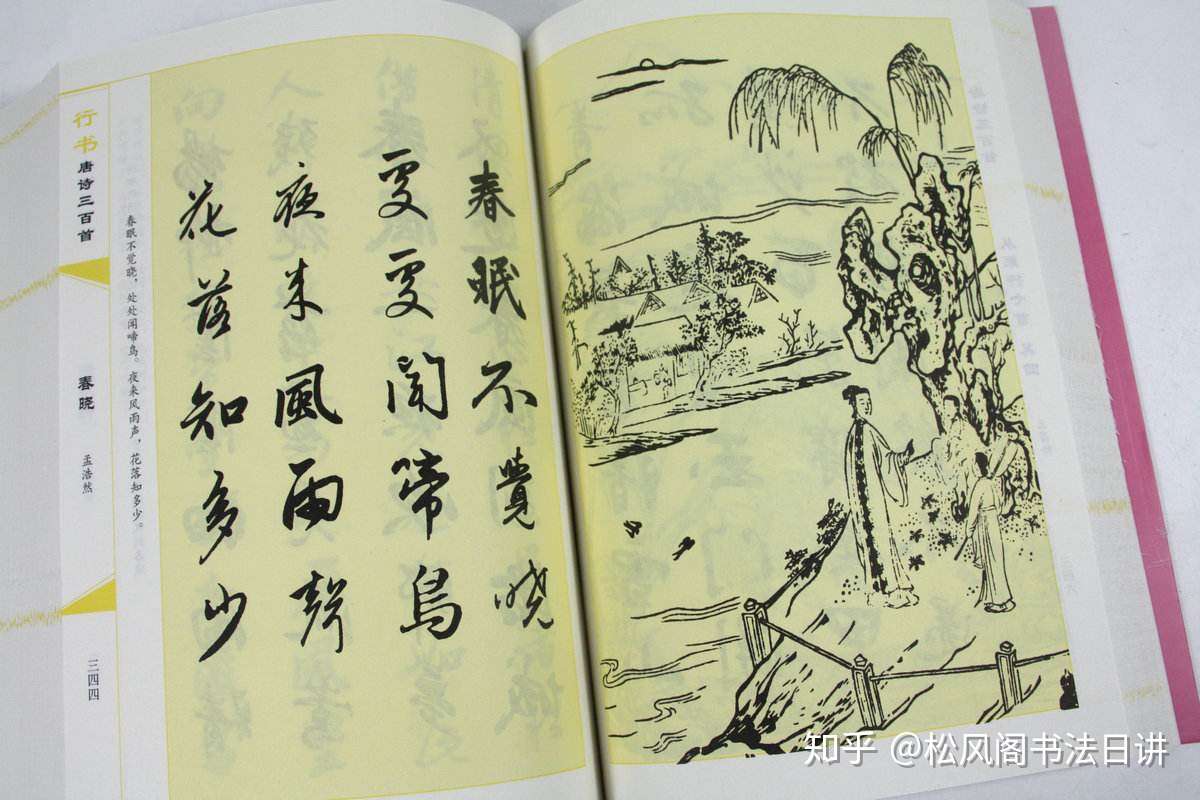 春眠不覺曉
處處聞啼鳥
夜来風雨聲
花落知多少
行书
唐诗三百首
春眠不觉晓，处处闻啼鸟。夜来风雨声，花落知多少。
春晓
孟浩然
三四四
知乎 @松风阁书法日讲